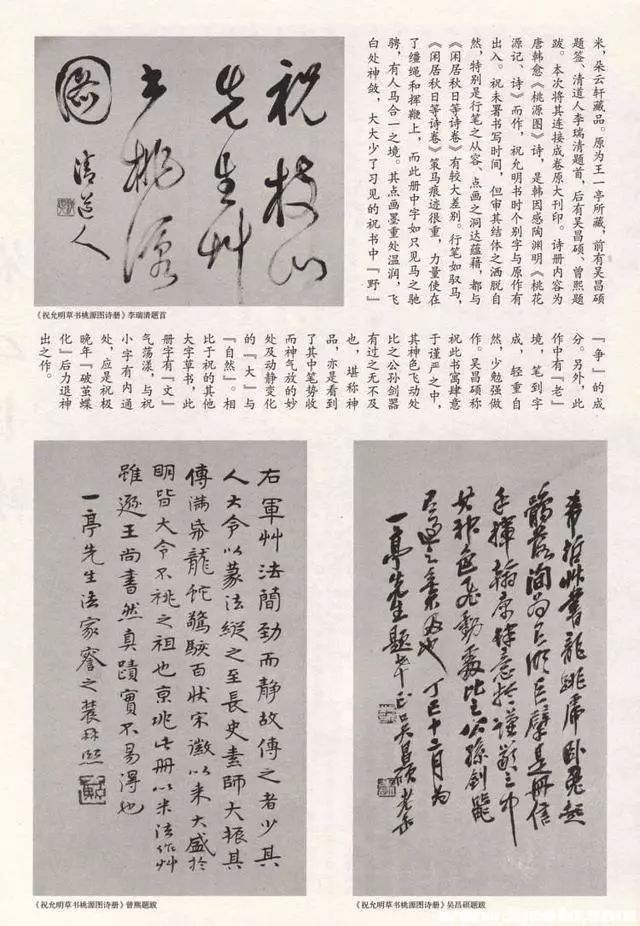 祝枝山
先生艸
书桃源
图
清道人
《祝允明草书桃源图诗册》李瑞清题首
米，朵云轩藏品。原为王一亭所藏，前有吴昌硕
题签、清道人李瑞清题首，后有吴昌硕、曾熙题
跋。本次将其连接成卷原大刊印。诗册内容为
唐韩愈《桃源图》诗，是韩因感陶渊明《桃花
源记、诗》而作，祝允明书时个别字与原作有
出入。祝未署书写时间，但审其结体之洒脱自
然，特别是行笔之从容、点画之洞达蕴藉，都与
《闲居秋日等诗卷》有较大差别。行笔如驭马，
《闲居秋日等诗卷》策马痕迹很重，力量使在
了缰绳和挥鞭上，而此册中字如只见马之驰
骋，有人马合一之境。其点画墨重处温润，飞
白处神敛，大大少了习见的祝书中『野』
『争』的成
分。另外，此
作中有『老』
境，笔到字
成，轻重自
然，少勉强做
作。吴昌硕称
祝此书寓肆意
于谨严之中，
其神色飞动处
比之公孙剑器
有过之无不及
也，堪称神
品，亦是看到
了其中笔势收
而神气放的妙
处及动静变化
的『大』与
『自然』。相
比于祝的其他
大字草书，此
册字有『文』
气荡漾，与祝
小字有内通
处，应是祝极
晚年『破茧蝶
化』后力退神
出之作。
希哲艸書龍跳虎卧兔起
鶻落洵為巨擘是册信
手揮翰肆意於謹嚴之中
其神色飛動處比之公孫劍器
有過之無不及也丁巳十二月為
一亭先生題奉正吴昌碩老缶
《祝允明草书桃源图诗册》吴昌硕题跋
右軍艸法簡勁而靜故傳之者少其
人大令以篆法縱之至長史素師大振其
傳滿紙龍蛇驚駭百狀宋徽以来大盛於
明皆大令不祧之祖也京兆此册以米法作艸
雖遜王尚書然真蹟實不易得也
一亭先生法家詧之農髯熙
《祝允明草书桃源图诗册》曾熙题跋